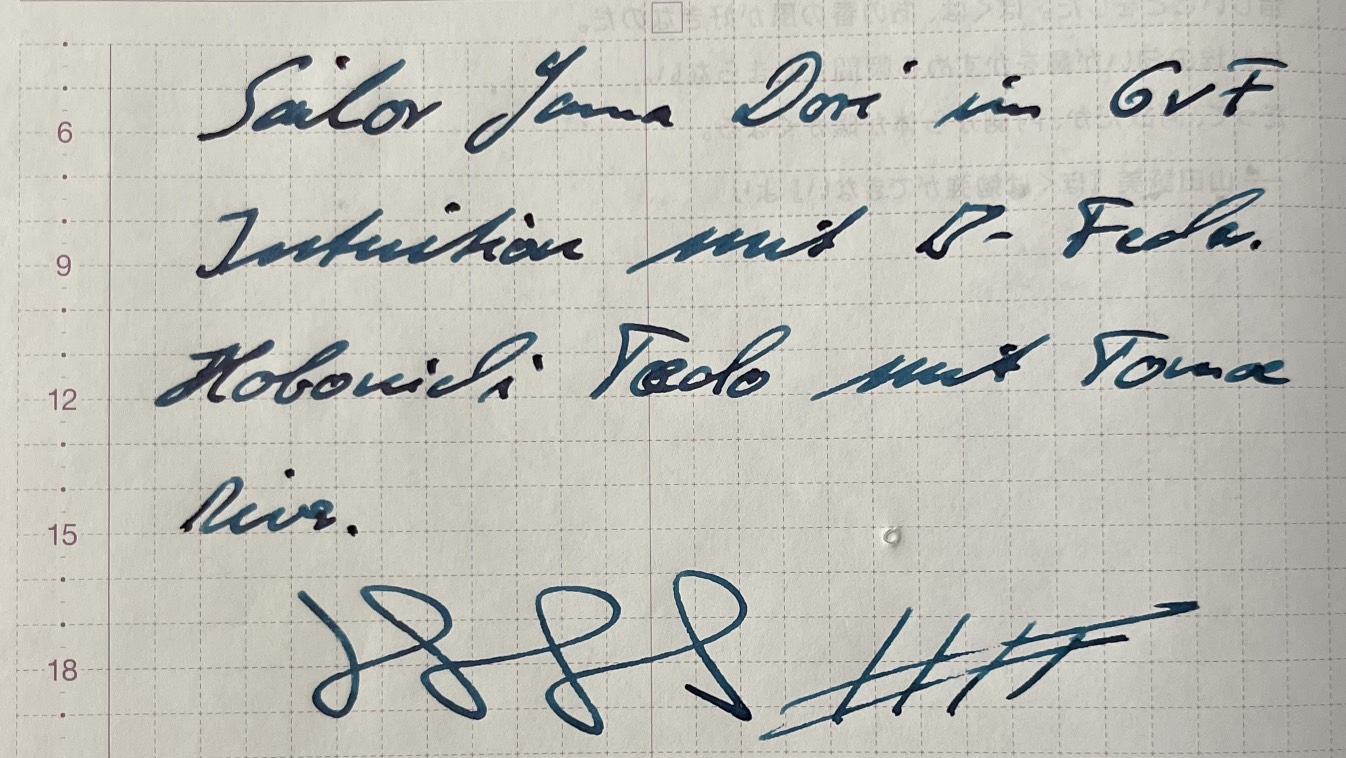 Sailor Yama Dori im GvF
6
Intuition mit B- Feder.
9
Hobonichi Techo mit Tomoe
12
River.
15
18